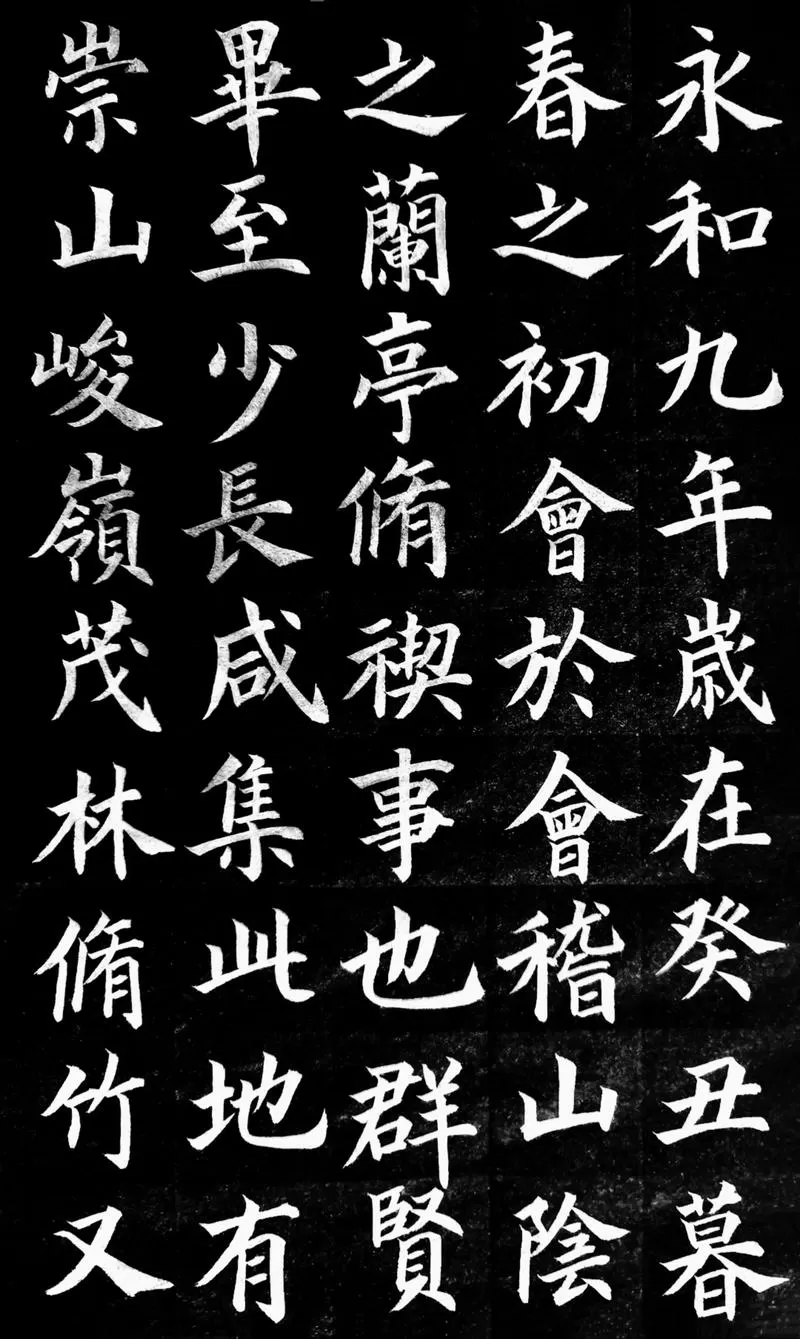 永和九年歳在癸丑暮
春之初會於會稽山陰
之蘭亭脩禊事也群賢
畢至少長咸集此地有
崇山峻嶺茂林脩竹又